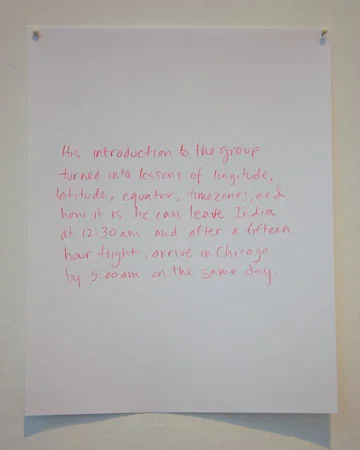 His introduction to the group
turned into lessons of longitude,
latitude, equator, timezones, and
how it is he can leave India
at 12:30 am and after a fifteen
hour flight, arrive in Chicago
by 5:00 am on the same day.